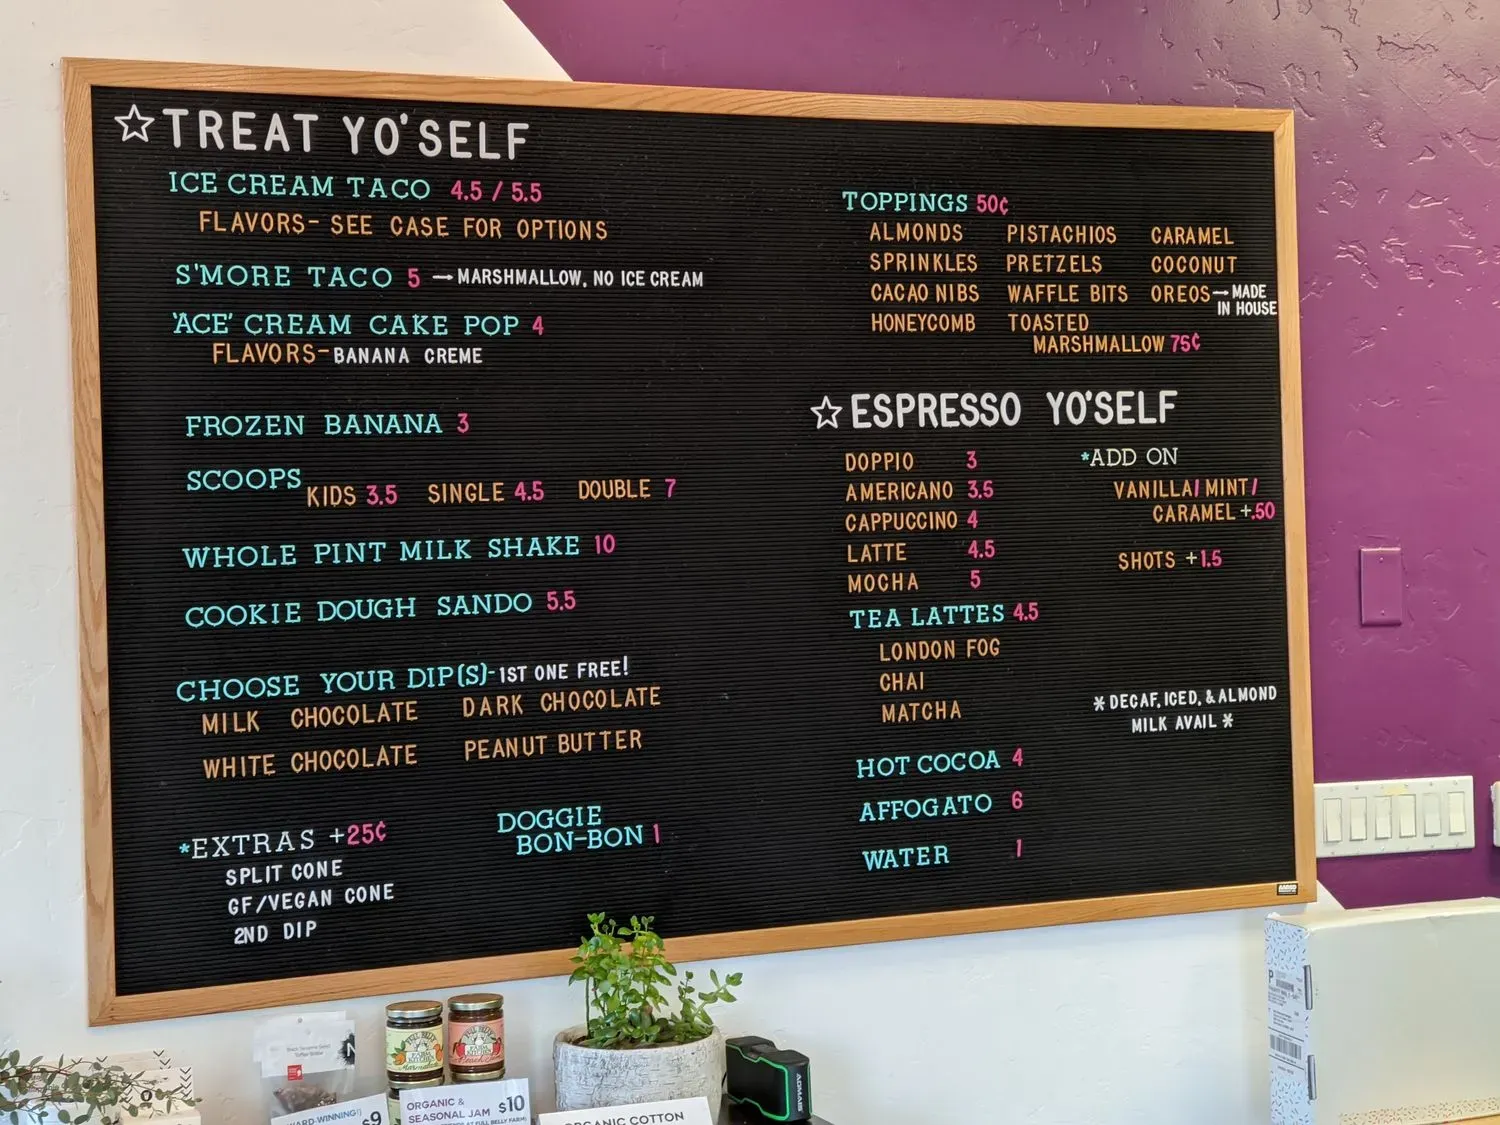 ☆TREAT YO'SELF
ICE CREAM TACO 4.5 / 5.5
FLAVORS- SEE CASE FOR OPTIONS
S'MORE TACO 5 →MARSHMALLOW, NO ICE CREAM
'ACE' CREAM CAKE POP 4
FLAVORS-BANANA CREME
FROZEN BANANA 3
SCOOPS KIDS 3.5 SINGLE 4.5 DOUBLE 7
WHOLE PINT MILK SHAKE 10
COOKIE DOUGH SANDO 5.5
CHOOSE YOUR DIP(S)-1ST ONE FREE!
MILK CHOCOLATE DARK CHOCOLATE
WHITE CHOCOLATE PEANUT BUTTER
*EXTRAS +25¢
SPLIT CONE
GF/VEGAN CONE
2ND DIP
DOGGIE
BON-BON 1
TOPPINGS 50¢
ALMONDS PISTACHIOS CARAMEL
SPRINKLES PRETZELS COCONUT
CACAO NIBS WAFFLE BITS OREOS→MADE
IN HOUSE
HONEYCOMB TOASTED
MARSHMALLOW 75¢
☆ESPRESSO YO'SELF
DOPPIO 3
AMERICANO 3.5
CAPPUCCINO 4
LATTE 4.5
MOCHA 5
*ADD ON
VANILLA/MINT/
CARAMEL +.50
SHOTS +1.5
TEA LATTES 4.5
LONDON FOG
CHAI
MATCHA
* DECAF, ICED, & ALMOND
MILK AVAIL *
HOT COCOA 4
AFFOGATO 6
WATER 1
FULL BELLY
FARM
KITCHEN
Marmalade
FULL BELLY
FARM
KITCHEN
WARD-WINNING!) $9
ORGANIC &
SEASONAL JAM $10
AT FULL BELLY FARM)
ORGANIC COTTON
AOMAIS
P